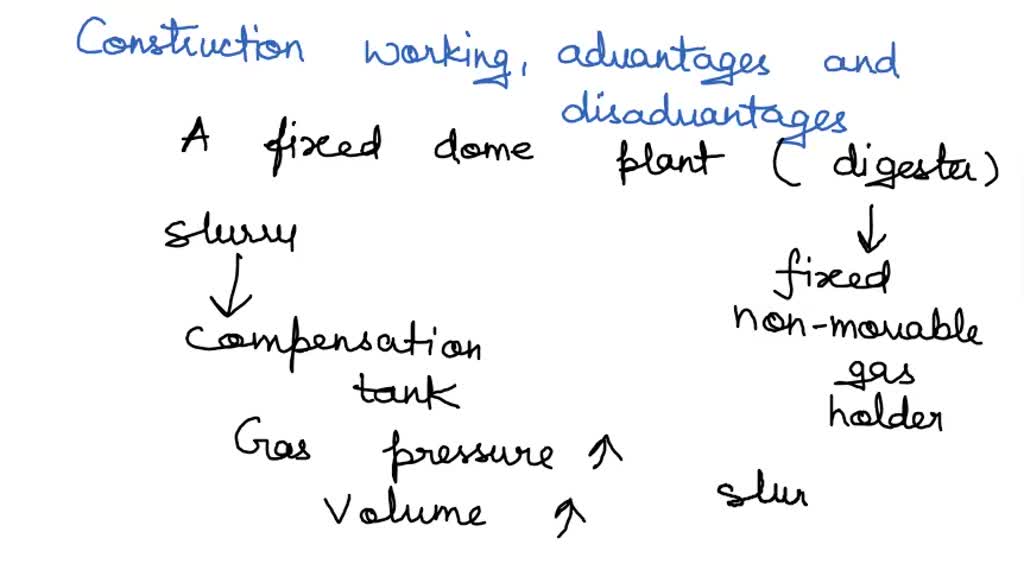 Construction working, advantages and
disadvantages
A fixed dome plant (digester)
slurry
↓
↓
fixed
non-movable
gas
holder
compensation
tank
Gas pressure ↑
Volume ↑
slur